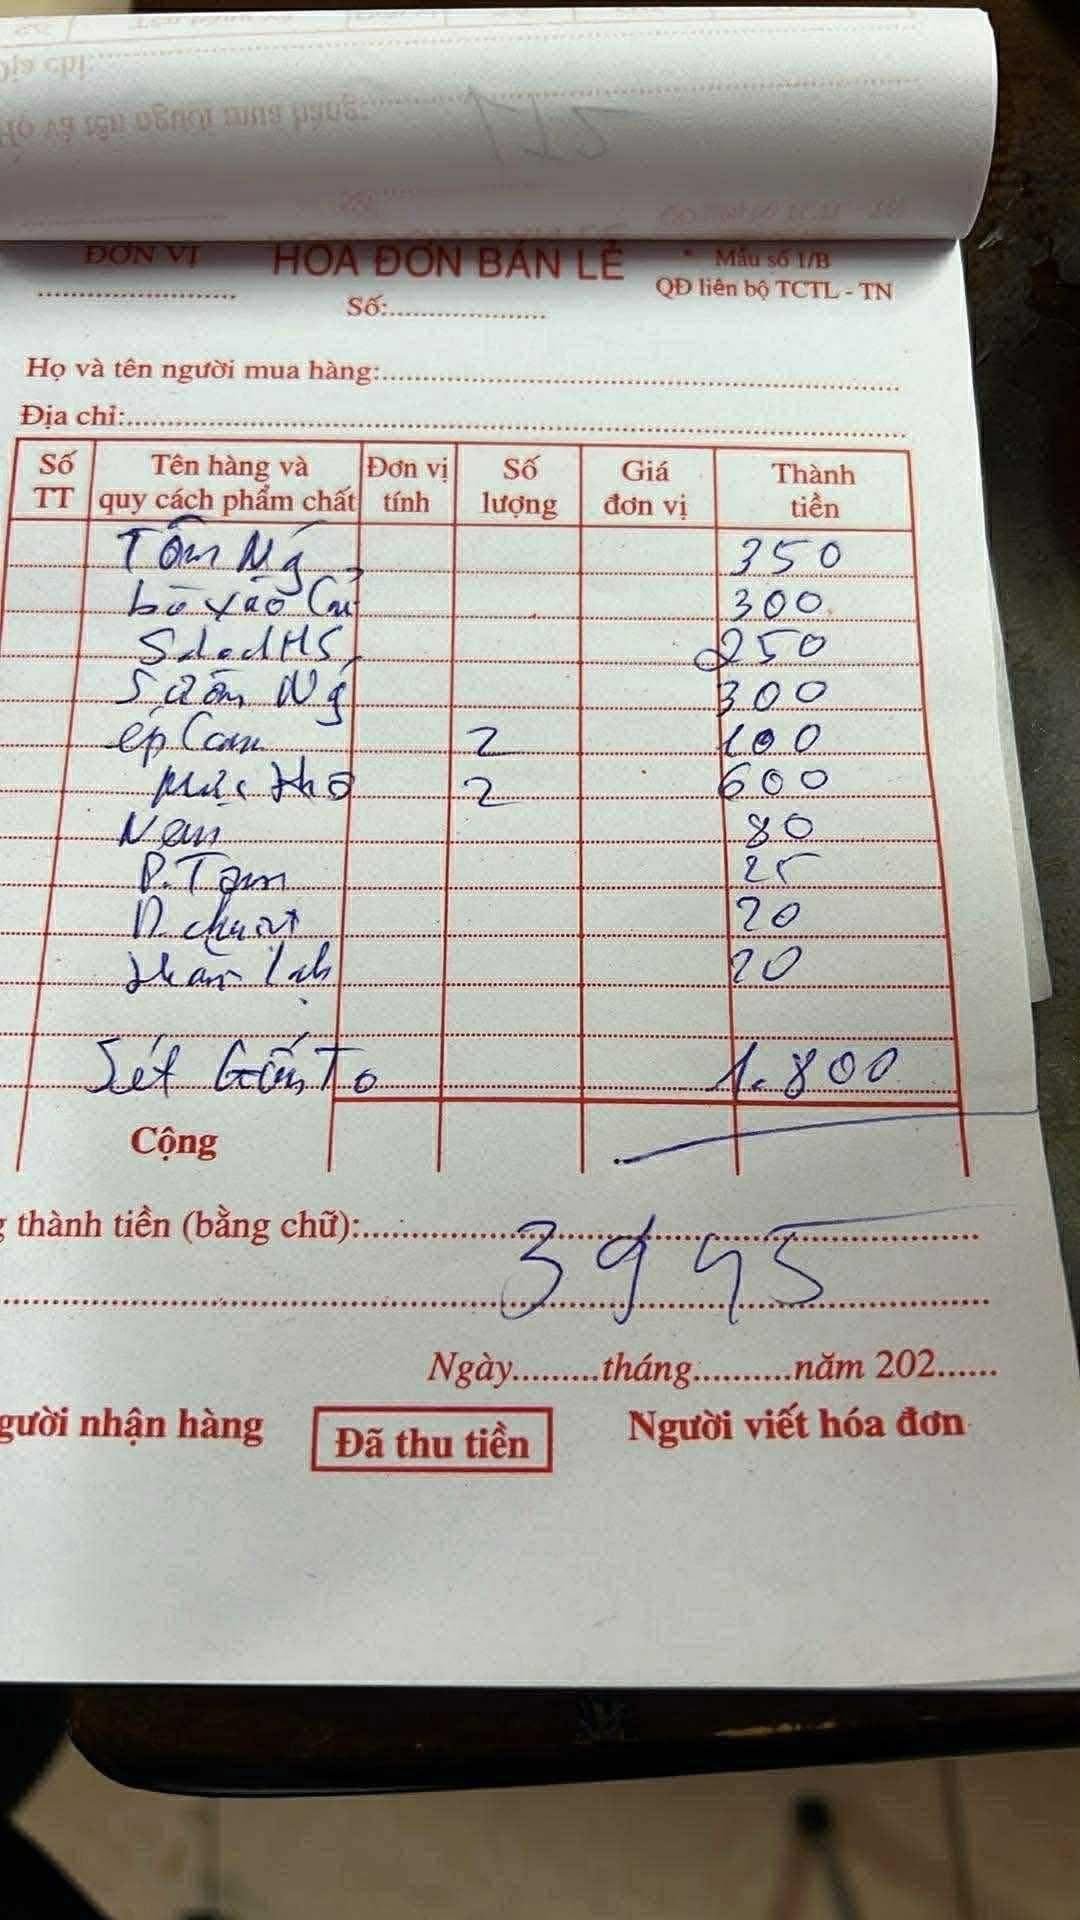 ĐƠN VỊ HÓA ĐƠN BÁN LẺ Mẫu số 1/B
Số: QĐ liên bộ TCTL - TN
Họ và tên người mua hàng:
Địa chỉ:
Số TT Tên hàng và quy cách phẩm chất Đơn vị tính Số lượng Giá đơn vị Thành tiền
Tôm Ng 350
bò xào 300
Salad HS 250
Sườn Ng 300
ép Cam 2 100
2 600
Nem 80
P. Tôm 25
20
Khăn lạh 20
Sét 1.800
Cộng
thành tiền (bằng chữ):
3945
Ngày.........tháng..........năm 202......
gười nhận hàng Đã thu tiền Người viết hóa đơn